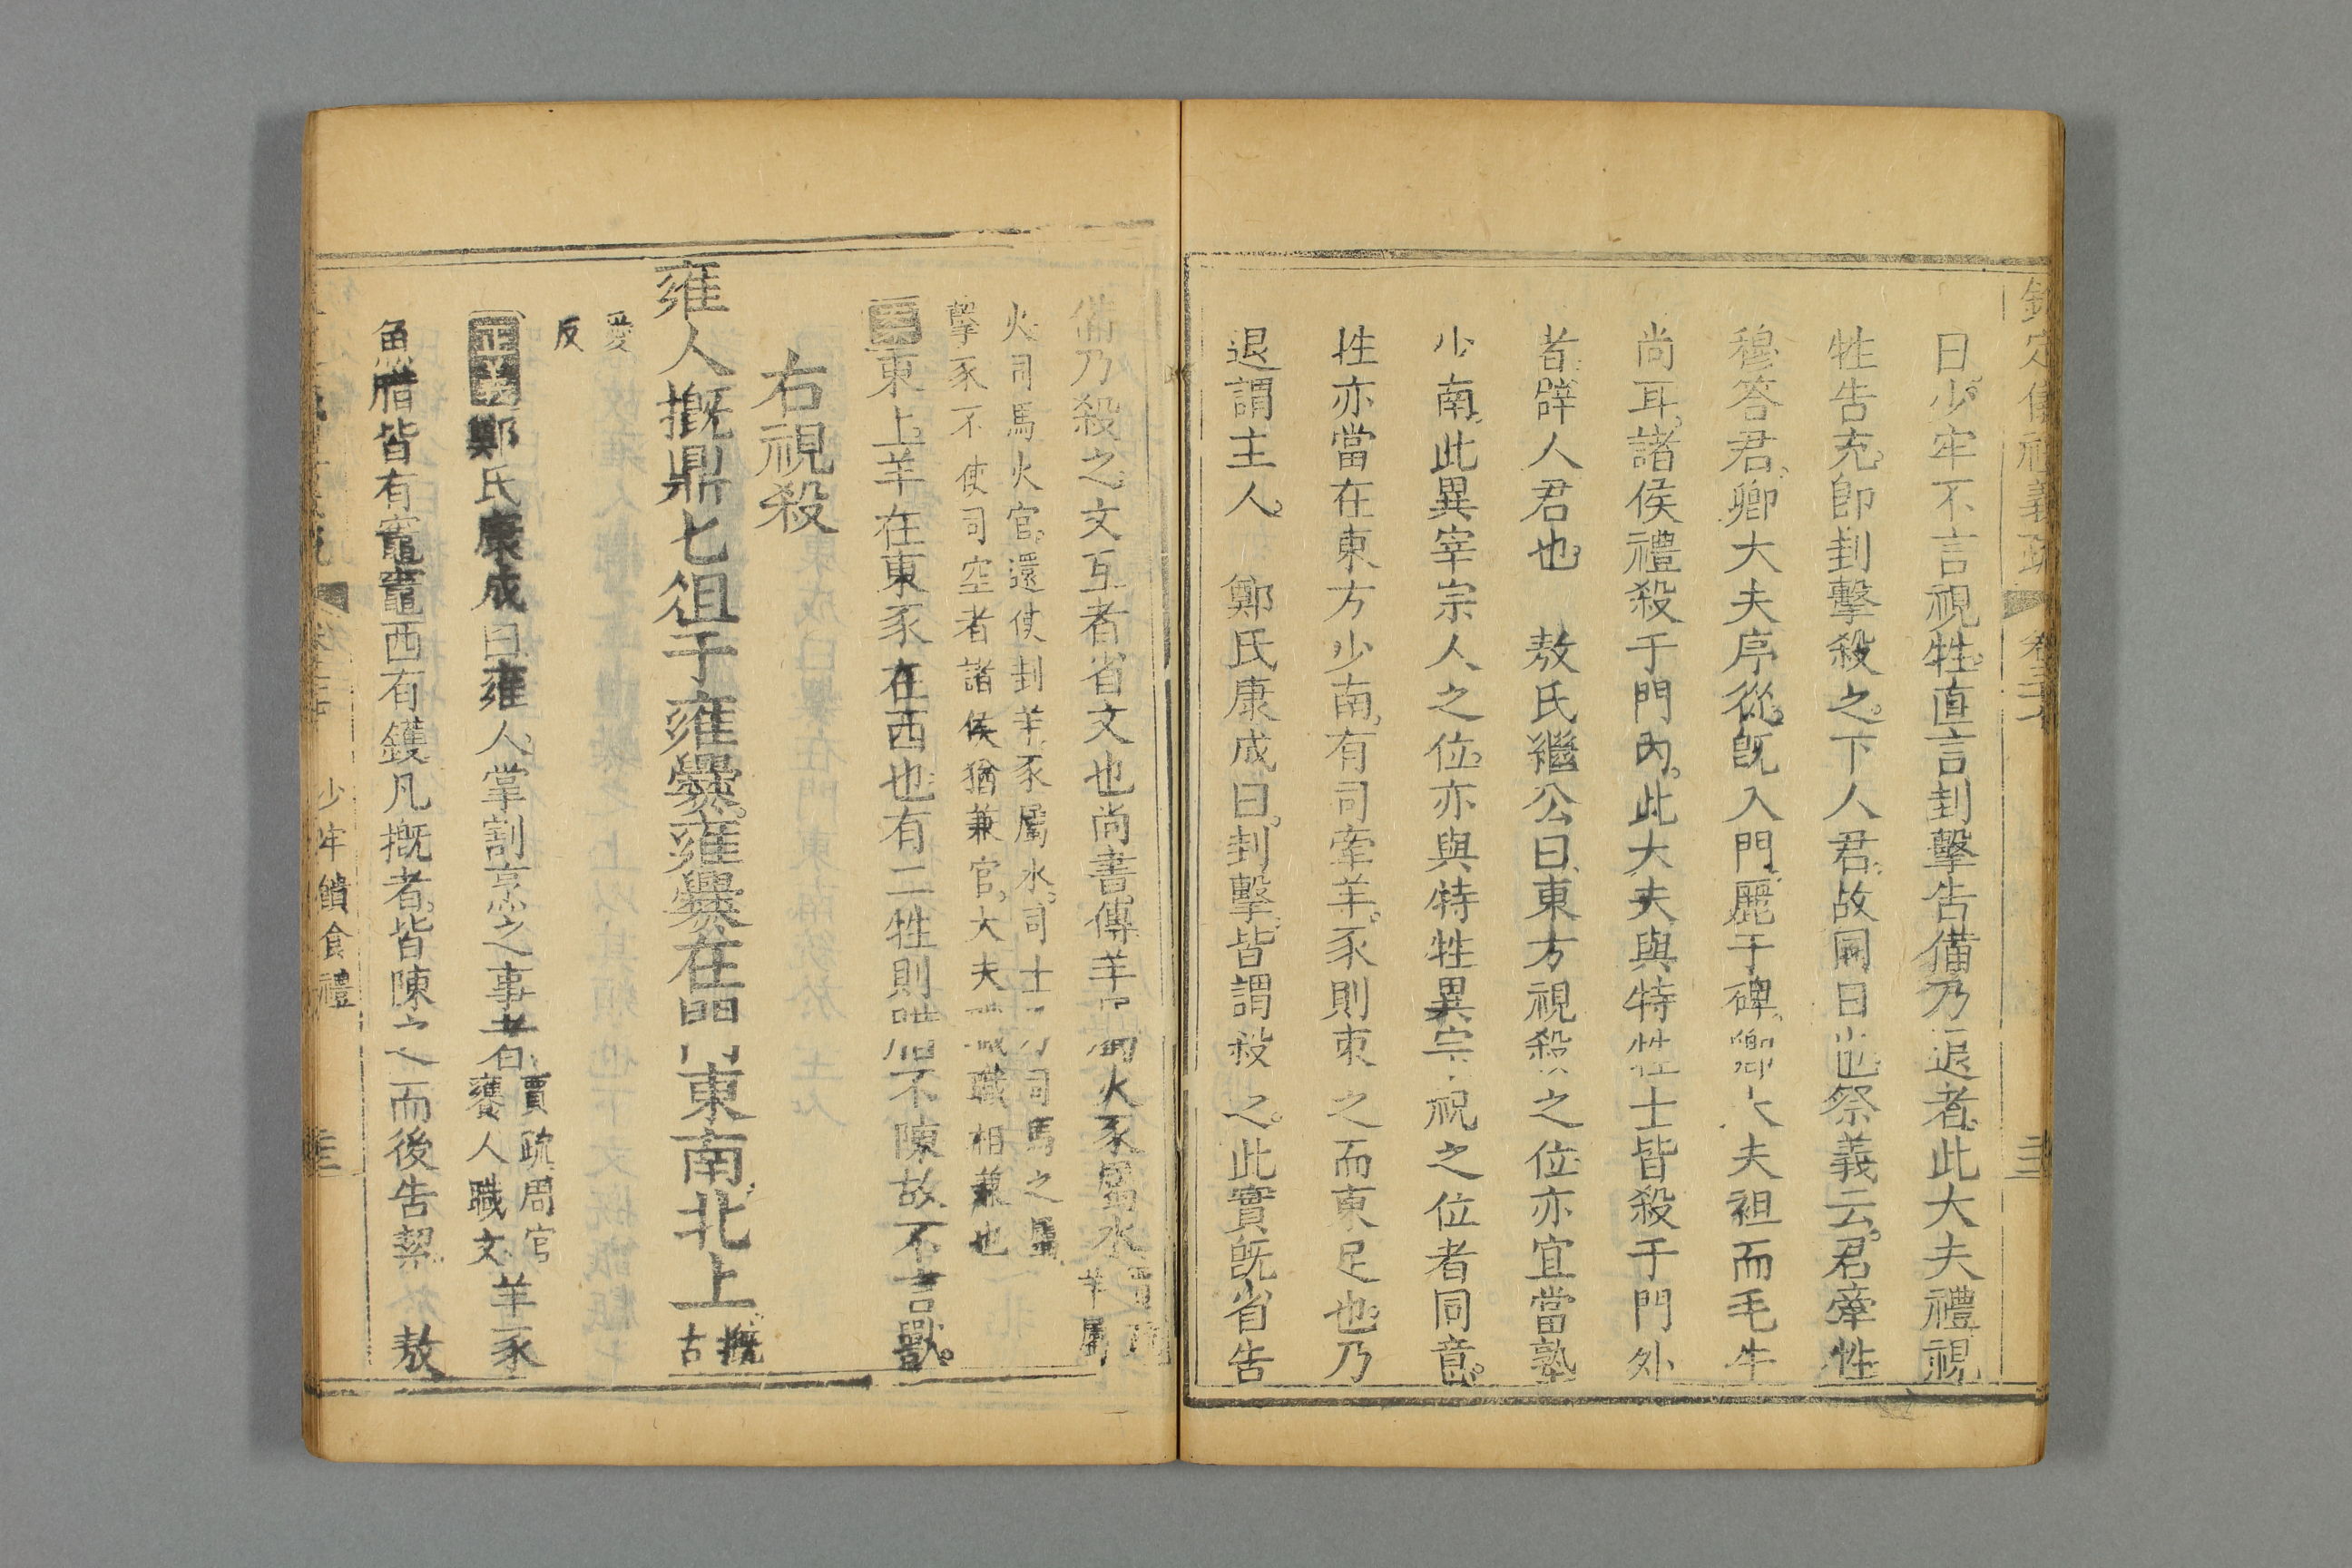 欽定儀禮義疏 卷三十八
日少牢不言視牲直言刲擊告備乃退者此大夫禮視
牲告充卽刲擊殺之下人君故同日也祭義云君牽牲
穆答君卿大夫序從旣入門麗于碑卿大夫袒而毛牛
尚耳諸侯禮殺于門內此大夫與特牲士皆殺于門外
者辟人君也 敖氏繼公曰東方視殺之位亦宜當塾
少南此異宰宗人之位亦與特牲異宗祝之位者同意
牲亦當在東方少南有司牽羊豕則束之而東足也乃
退謂主人 鄭氏康成曰刲擊皆謂殺之此實旣省告
備乃殺之文互者省文也尚書傳羊屬火豕屬水 賈疏
羊屬
火司馬火官還使刲羊豕屬水司士乃司馬之屬
擊豕不使司空者諸侯猶兼官大夫職職相兼也
東上羊在東豕在西也有二牲則腊不陳故不言獸
右視殺
雍人摡鼎匕俎于雍爨雍爨在門東南北上 摡
古
愛
反
正義鄭氏康成曰雍人掌割亨之事者 賈疏周官
饔人職文 羊豕
魚腊皆有竈竈西有鑊凡摡者皆陳之而後告絜 敖
少牢饋食禮